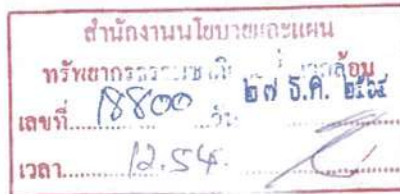 สำนักงานนโยบายและแผน
ทรัพยากรธรรมชาติ สิ่งแวดล้อม
เลขที่ 18800 วัน ๒๗ ธ.ค. ๒๕๖๔
เวลา 12.54.